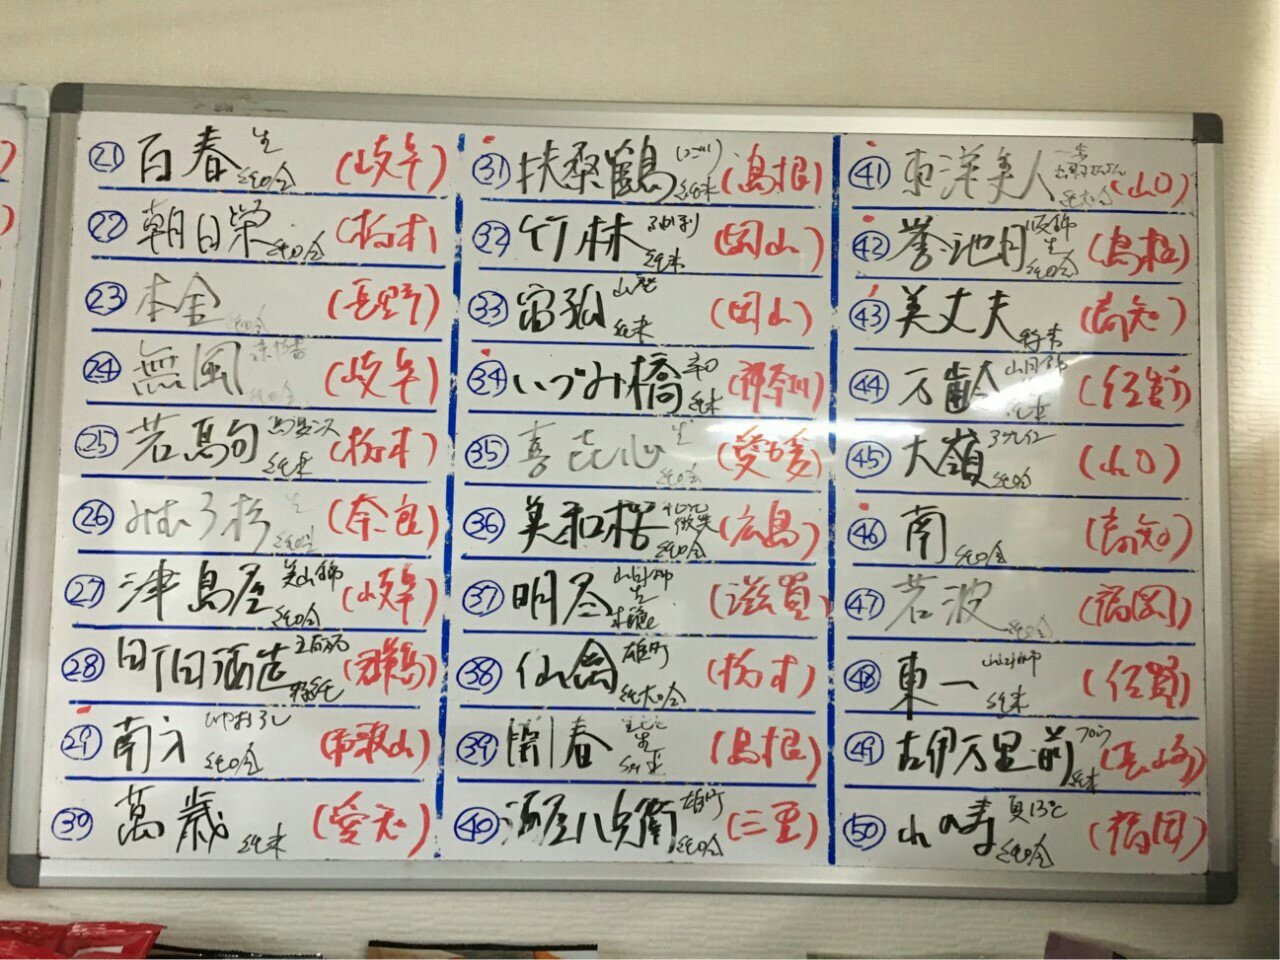 ㉑ 百春 生 純吟 (岐阜)
㉒ 朝日榮 純吟 (栃木)
㉓ 本金 純吟 (長野)
㉔ 無風 純吟 (岐阜)
㉕ 若駒 純米 (栃木)
㉖ みむろ杉 生 純吟 (奈良)
㉗ 津島屋 美山錦 純吟 (岐阜)
㉘ 町田酒造 五百万石 特純 (群馬)
㉙ 南方 純吟 (和歌山)
㉚ 萬歳 純米 (愛知)
㉛ 扶桑鶴 純米 (島根)
㉜ 竹林 純米 (岡山)
㉝ 宙狐 山廃 純米 (岡山)
㉞ いづみ橋 辛口 純米 (神奈川)
㉟ 喜 心 生 純吟 (愛媛)
㊱ 美和桜 純吟 (広島)
㊲ 明尽 山田錦 生 (滋賀)
㊳ 仙禽 雄町 純大吟 (栃木)
㊴ 開春 (島根)
㊵ 酒屋八兵衛 雄町 純吟 (三重)
㊶ 東洋美人 純大吟 (山口)
㊷ 誉池月 改良錦 生 純吟 (島根)
㊸ 美丈夫 特純 (高知)
㊹ 万齢 純米 (佐賀)
㊺ 大嶺 3粒 純吟 (山口)
㊻ 南 純吟 (高知)
㊼ 若波 純吟 (福岡)
㊽ 東一 山田錦 純米 (佐賀)
㊾ 古伊万里前 純米 (長崎)
㊿ 山の寿 夏13℃ 純吟 (福岡)